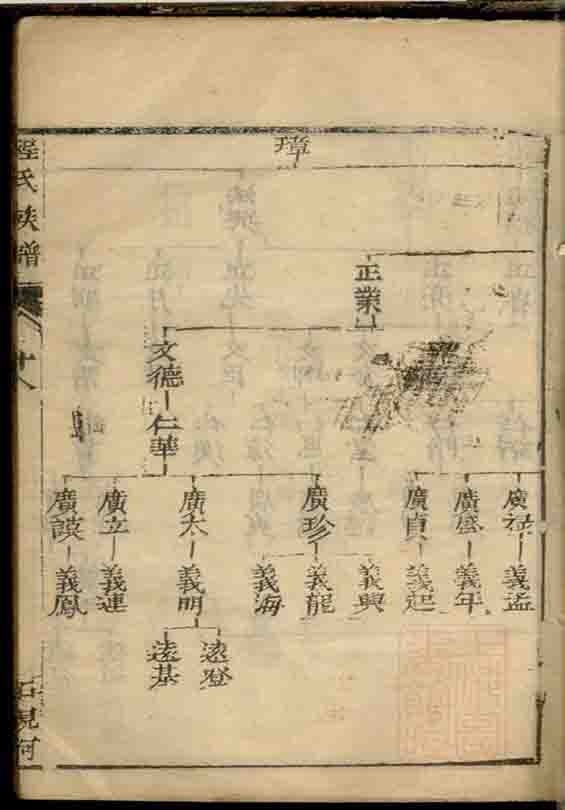 璋
正業
文德
仁華
廣祿
廣盛
廣貞
廣珍
廣太
廣立
廣謨
義孟
義年
義起
義興
義龍
義海
義明
義連
義鳳
遠登
遠基
程氏族譜
十八
石見何